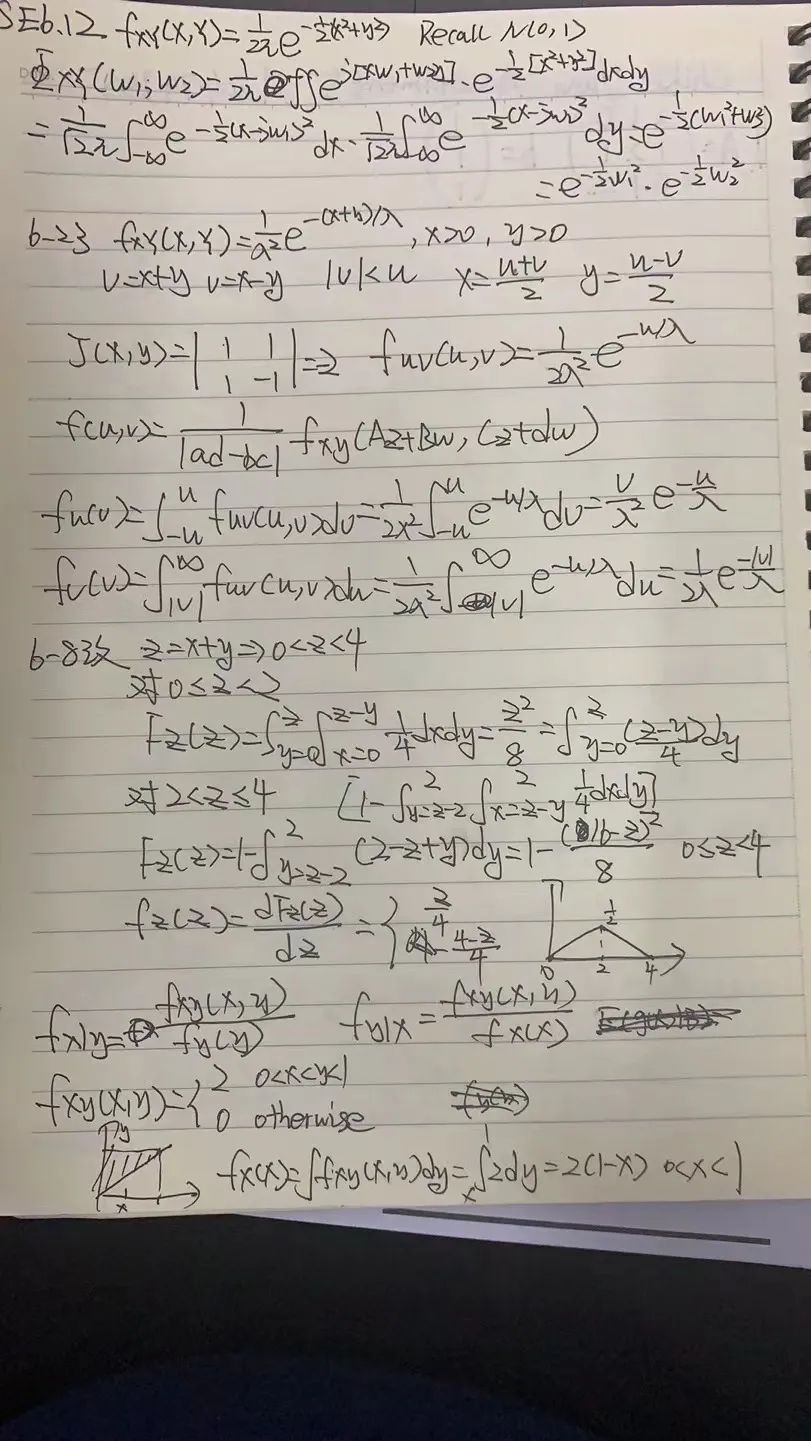 SE6.12 fxy(x,y)=1/2π e^-½(x²+y²) Recall N(0,1)
Φxy(w₁,w₂)=1/2π ∫∫e^j[xw₁+w₂y]·e^-½[x²+y²]dxdy
=1/√2π ∫_-∞^∞ e^-½(x-jw₁)²dx·1/√2π ∫_-∞^∞ e^-½(x-jw₂)²dy=e^-½(w₁²+w₂²)
=e^-½w₁²·e^-½w₂²
6-23 fxy(x,y)=1/λ² e^-(x+y)/λ, x>0, y>0
U=x+y v=x-y |v|<u x=(u+v)/2 y=(u-v)/2
J(x,y)=|1 1; 1 -1|=2 fuv(u,v)=1/2λ² e^-u/λ
f(u,v)=1/|ad-bc| fxy(Az+Bw, Cz+dw)
fu(u)=∫_-u^u fuv(u,v)dv=1/2λ² ∫_-u^u e^-u/λ dv=u/λ² e^-u/λ
fv(v)=∫_|v|^∞ fuv(u,v)du=1/2λ² ∫_|v|^∞ e^-u/λ du=1/2λ e^-|v|/λ
6-8改 z=x+y⇒0<z<4
对0≤z<2
Fz(z)=∫_y=0^z ∫_x=0^z-y ¼dxdy=z²/8=∫_y=0^z (z-y)/4 dy
对2<z≤4 [1-∫_y=z-2^2 ∫_x=z-y^2 ¼dxdy]
Fz(z)=1-∫_y=z-2^2 (2-z+y)dy=1-(16-z)²/8 0≤z<4
fz(z)=dFz(z)/dz={z/4
4-z/4
½
0 2 4
fx|y=fxy(x,y)/fy(y) fy|x=fxy(x,y)/fx(x)
fxy(x,y)={2 0<x<y<1
0 otherwise
y
x
fx(x)=∫fxy(x,y)dy=∫_x^1 2dy=2(1-x) 0<x<1